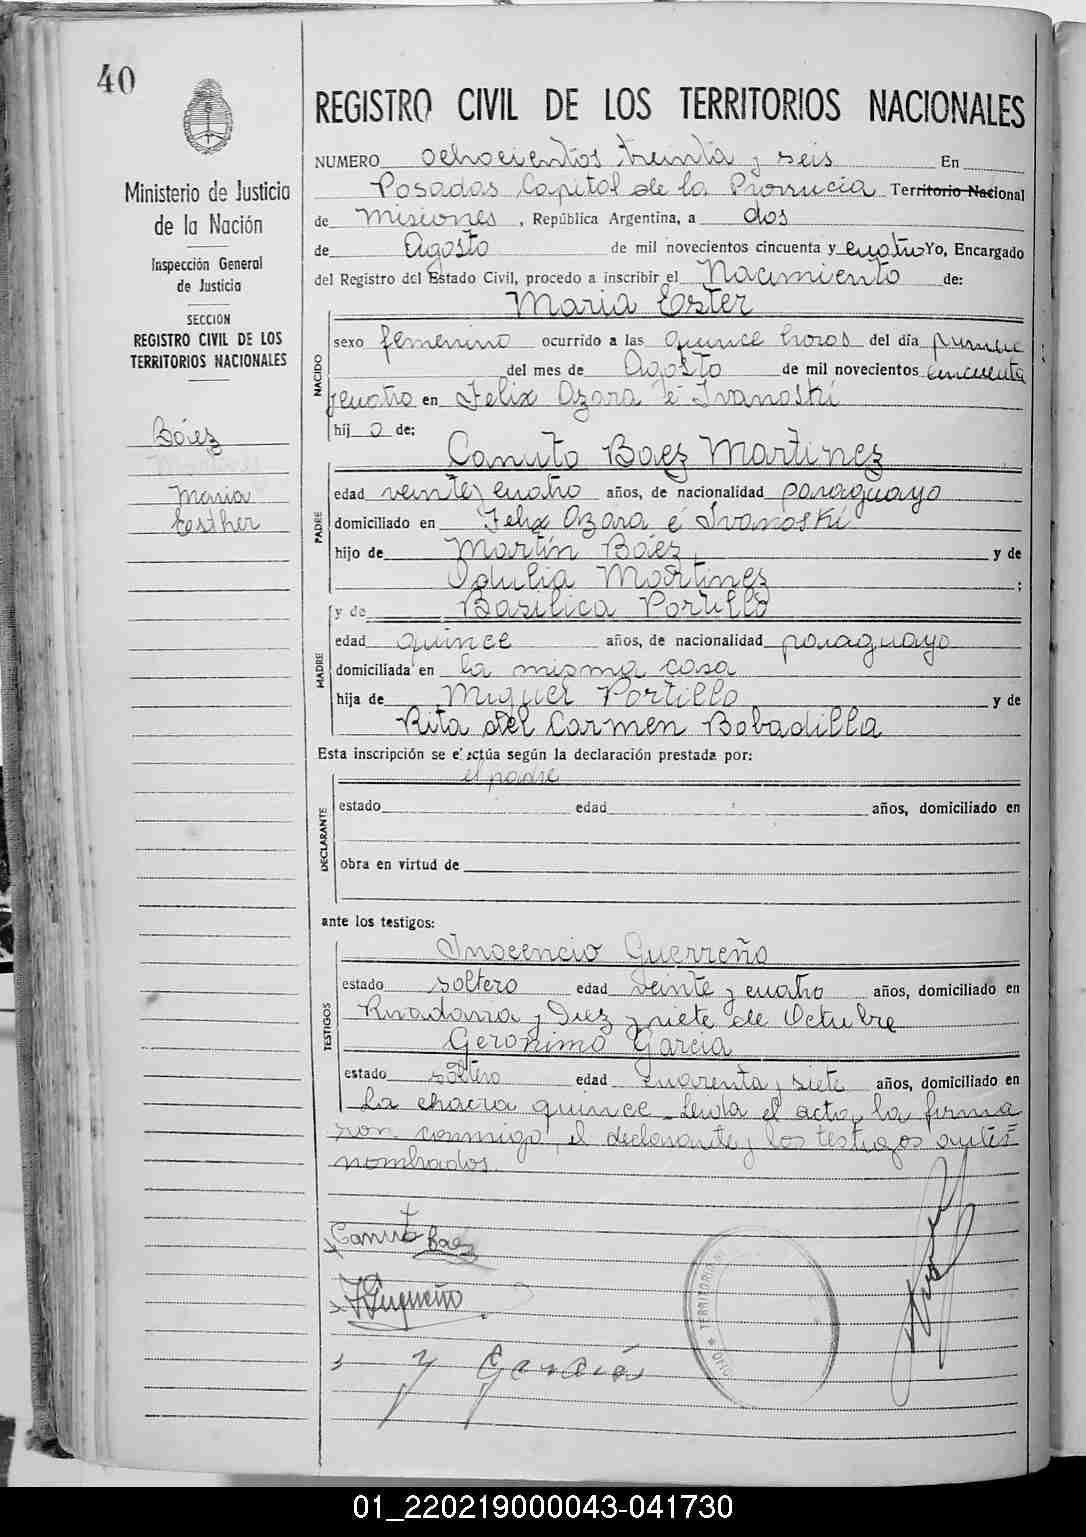 40
Ministerio de Justicia
de la Nación
Inspección General
de Justicia
SECCION
REGISTRO CIVIL DE LOS
TERRITORIOS NACIONALES
Báez
Maria
Esther
REGISTRO CIVIL DE LOS TERRITORIOS NACIONALES
NUMERO ochocientos treinta y seis En
Posadas Capital de la Provincia Territorio Nacional
de Misiones, República Argentina, a dos
de Agosto de mil novecientos cincuenta y cuatro Yo, Encargado
del Registro del Estado Civil, procedo a inscribir el Nacimiento de:
Maria Ester
NACIDO
sexo femenino ocurrido a las quince horas del día primero
del mes de Agosto de mil novecientos cincuenta
y cuatro en Felix Azara é Ivanoski
hij a de:
Canuto Baez Martinez
PADRE
edad veinte y cuatro años, de nacionalidad paraguayo
domiciliado en Felix Azara é Ivanoski
hijo de Martín Báez y de
Odulia Martinez ;
y de Basilica Portillo
MADRE
edad quince años, de nacionalidad paraguayo
domiciliada en la misma casa
hija de Miguel Portillo y de
Rita del Carmen Bobadilla
Esta inscripción se efectúa según la declaración prestada por:
el padre
DECLARANTE
estado edad años, domiciliado en
obra en virtud de
ante los testigos:
Inocencio Guerreño
TESTIGOS
estado soltero edad veinte y cuatro años, domiciliado en
Rivadavia y Diez y siete de Octubre
Geronimo Garcia
estado soltero edad cuarenta y siete años, domiciliado en
La chacra quince. Leida el acta, la firma
ron conmigo, el declarante y los testigos antes
nombrados.
Canuto Baez
Guerreño
Garcia
TERRITORIO
01_220219000043-041730